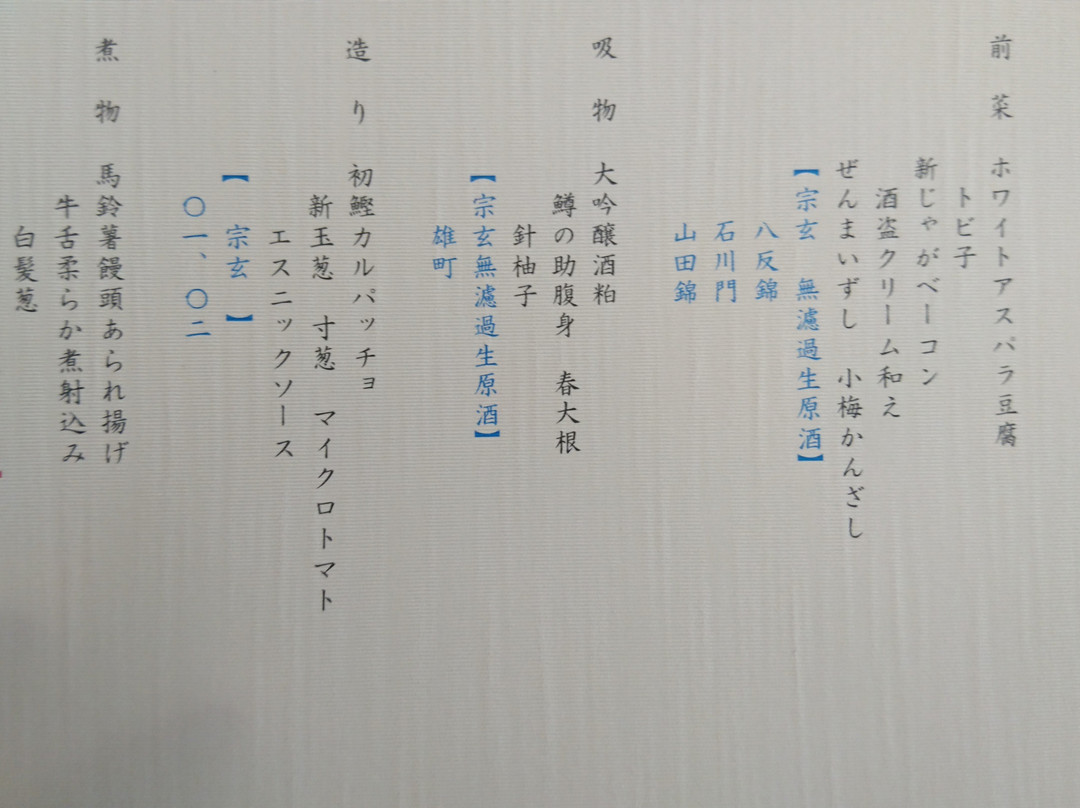 前菜 ホワイトアスパラ豆腐
トビ子
新じゃがベーコン
酒盗クリーム和え
ぜんまいずし 小梅かんざし
【宗玄 無濾過生原酒】
八反錦
石川門
山田錦
吸物 大吟醸酒粕
鱒の助腹身 春大根
針柚子
【宗玄無濾過生原酒】
雄町
造り 初鰹カルパッチョ
新玉葱 寸葱 マイクロトマト
エスニックソース
【 宗玄 】
〇一、〇二
煮物 馬鈴薯饅頭あられ揚げ
牛舌柔らか煮射込み
白髪葱